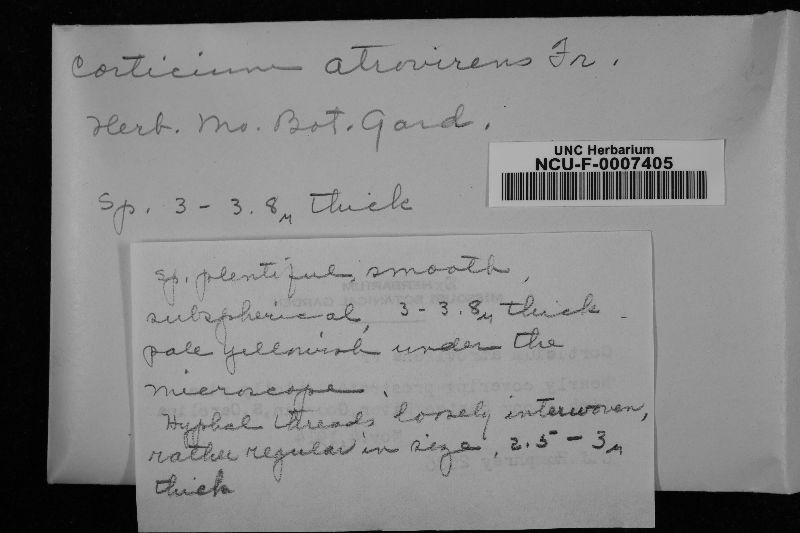 Corticium atrovirens Fr.
Herb. Mo. Bot. Gard.
UNC Herbarium
NCU-F-0007405
Sp. 3 - 3.8 µ thick
Sp. plentiful, smooth,
subspherical, 3 - 3.8 µ thick
pale yellowish under the
microscope.
Hyphal threads loosely interwoven,
rather regular in size, 2.5 - 3 µ
thick